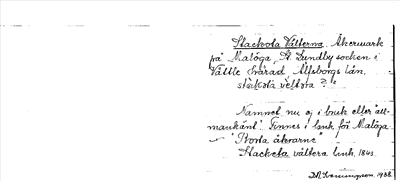 Stackota Välterna. Åkermark
på Maloga, St. Lundby socken i
Vättle härad Älfsborgs län.
stackota veltṛṇa ?
Namnet nu ej i bruk eller "all-
mänkänt". Finnes i bruk för Maloga
"Korta åkrarne"
Stackota vältera
1938